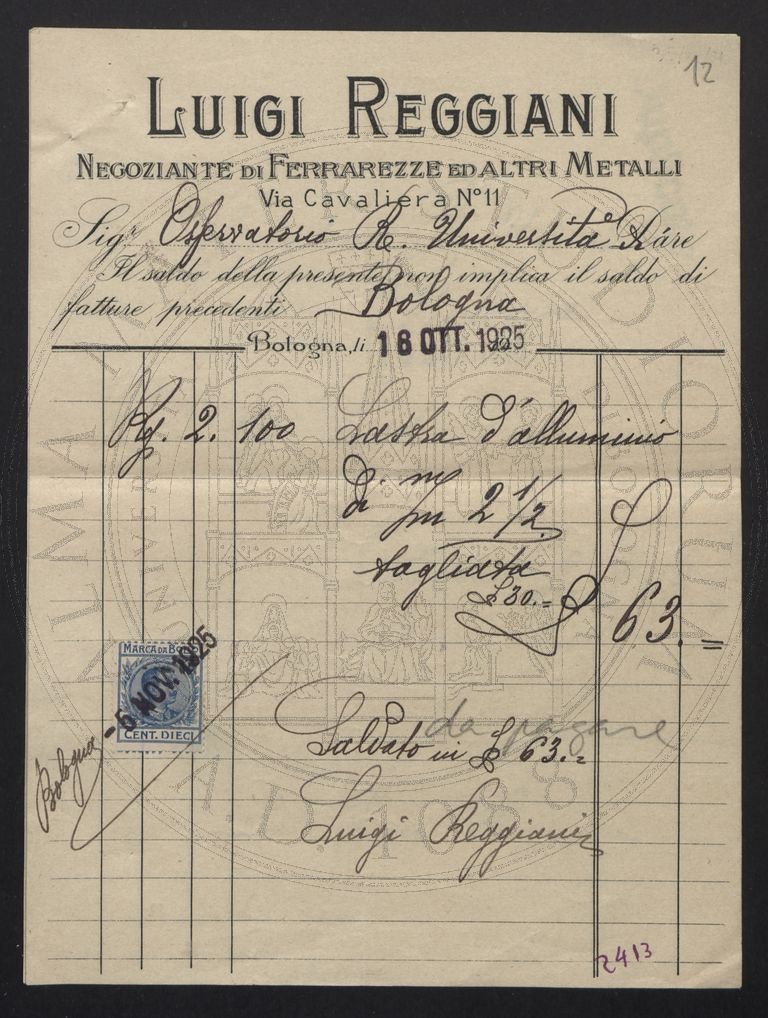 12
LUIGI REGGIANI
NEGOZIANTE DI FERRAREZZE ED ALTRI METALLI
Via Cavaliera N° 11
Sigr. Osservatorio R. Università Dáre
Il saldo della presente non implica il saldo di
fatture precedenti Bologna
Bologna, li 18 OTT. 1925
Kg. 2.100 Lastra d'alluminio
di m/m 2 1/2
tagliata
£ 30.= £ 63.=
MARCA DA BOLLO
-5 NOV. 1925
CENT. DIECI
Bologna
da pagare
Saldato in £ 63.=
Luigi Reggiani
2413
ALMA MATER STUDIORUM
A.D. 1088